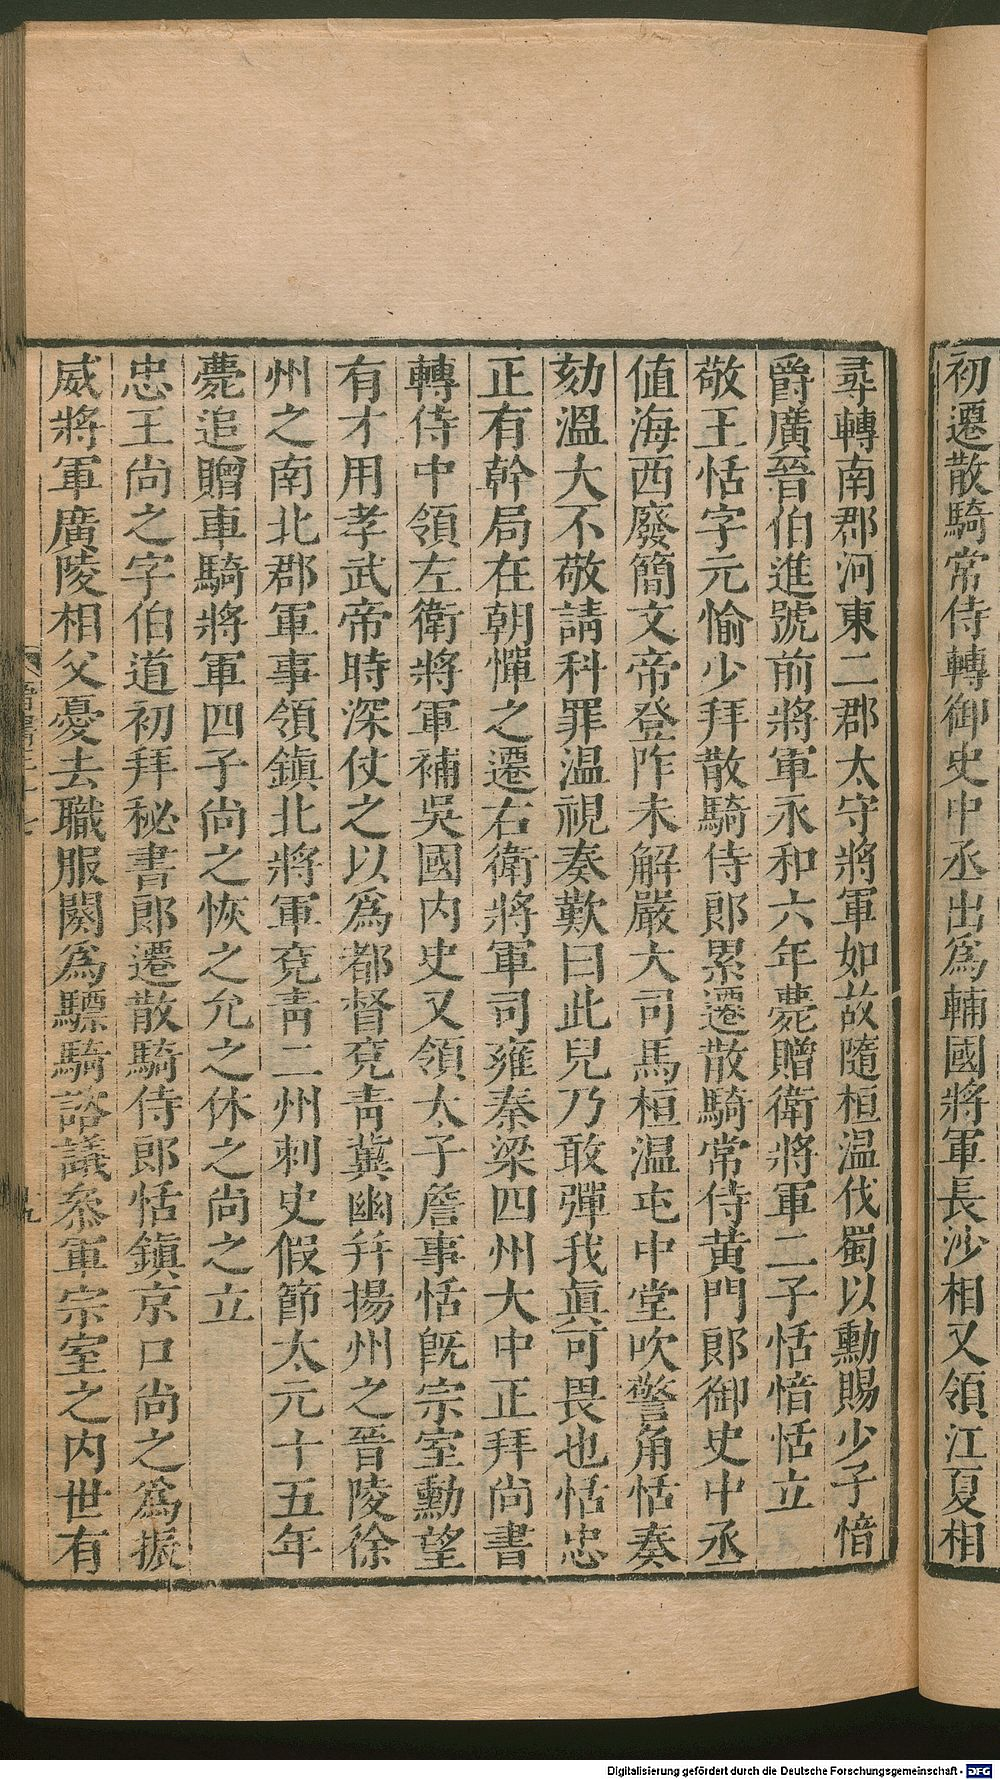 初遷散騎常侍轉御史中丞出爲輔國將軍長沙相又領江夏相
尋轉南郡河東二郡太守將軍如故隨桓温伐蜀以勳賜少子愔
爵廣晉伯進號前將軍永和六年薨贈衛將軍二子恬愔恬立
敬王恬字元愉少拜散騎侍郎累遷散騎常侍黄門郎御史中丞
値海西廢簡文帝登阼未解嚴大司馬桓温屯中堂吹警角恬奏
劾温大不敬請科罪温視奏歎曰此兒乃敢彈我眞可畏也恬忠
正有幹局在朝憚之遷右衛將軍司雍秦梁四州大中正拜尚書
轉侍中領左衛將軍補吳國内史又領太子詹事恬旣宗室勳望
有才用孝武帝時深仗之以爲都督兗靑冀幽幷揚州之晉陵徐
州之南北郡軍事領鎭北將軍兗靑二州刺史假節太元十五年
薨追贈車騎將軍四子尚之恢之允之休之尚之立
忠王尚之字伯道初拜秘書郎遷散騎侍郎恬鎭京口尚之爲振
威將軍廣陵相父憂去職服闋爲驃騎諮議參軍宗室之内世有
Digitalisierung gefördert durch die Deutsche Forschungsgemeinschaft - DFG